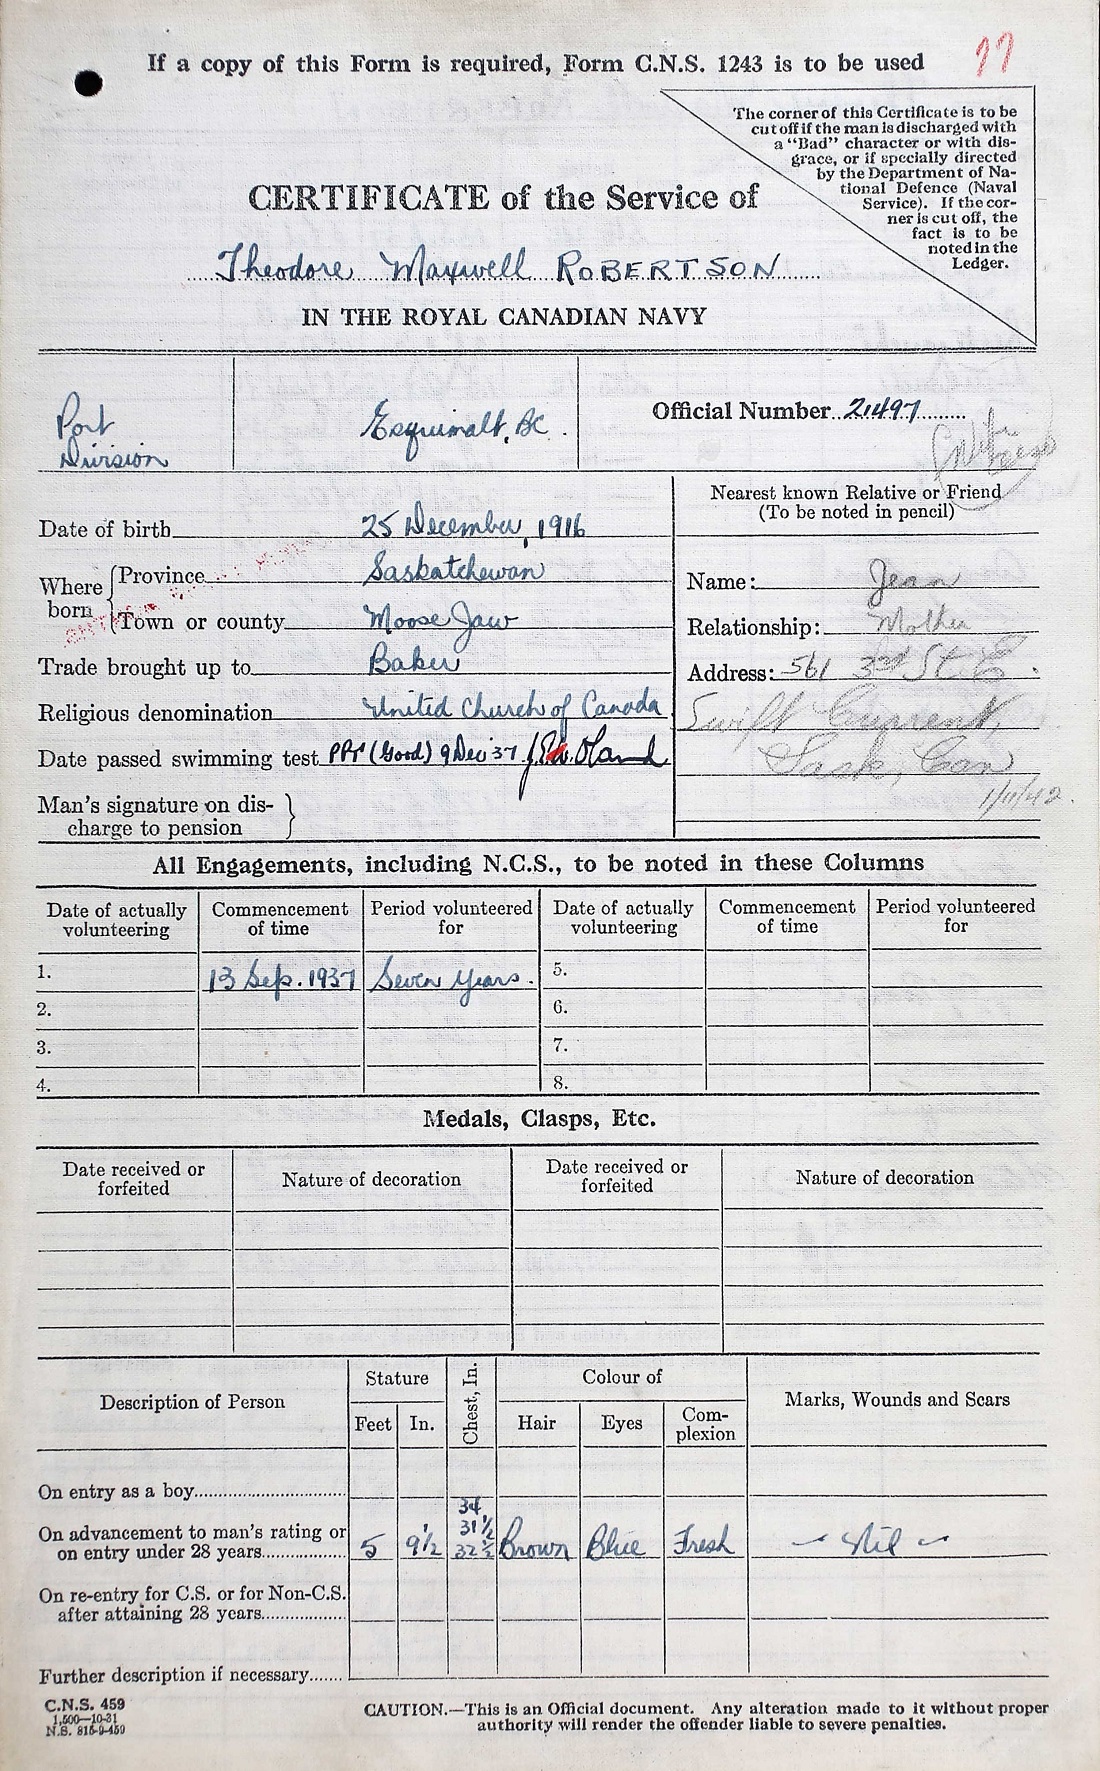 If a copy of this Form is required, Form C.N.S. 1243 is to be used
77
The corner of this Certificate is to be
cut off if the man is discharged with
a "Bad" character or with dis-
grace, or if specially directed
by the Department of Na-
tional Defence (Naval
Service). If the cor-
ner is cut off, the
fact is to be
noted in the
Ledger.
CERTIFICATE of the Service of
Theodore Maxwell ROBERTSON
IN THE ROYAL CANADIAN NAVY
Port Division
Esquimalt, BC.
Official Number 21497
Nearest known Relative or Friend
(To be noted in pencil)
Date of birth 25 December, 1916
Where born
Province Saskatchewan
Town or county Moose Jaw
Trade brought up to Baker
Religious denomination United Church of Canada
Date passed swimming test PPT (Good) 9 Dec '37 Oland
Man's signature on dis-
charge to pension
Name: Jean
Relationship: Mother
Address: 561 3rd St E.
Swift Current,
Sask, Can
1/11/42.
All Engagements, including N.C.S., to be noted in these Columns
Date of actually volunteering
Commencement of time
Period volunteered for
Date of actually volunteering
Commencement of time
Period volunteered for
1. 13 Sep. 1937 Seven Years. 5.
2. 6.
3. 7.
4. 8.
Medals, Clasps, Etc.
Date received or forfeited
Nature of decoration
Date received or forfeited
Nature of decoration
Description of Person
Stature
Feet In.
Chest, In.
Colour of
Hair Eyes Com-plexion
Marks, Wounds and Scars
On entry as a boy
On advancement to man's rating or
on entry under 28 years 5 9½ 34 31½ 32½ Brown Blue Fresh Nil
On re-entry for C.S. or for Non-C.S.
after attaining 28 years
Further description if necessary
C.N.S. 459
1,500—10-31
N.S. 815-9-459
CAUTION.—This is an Official document. Any alteration made to it without proper
authority will render the offender liable to severe penalties.